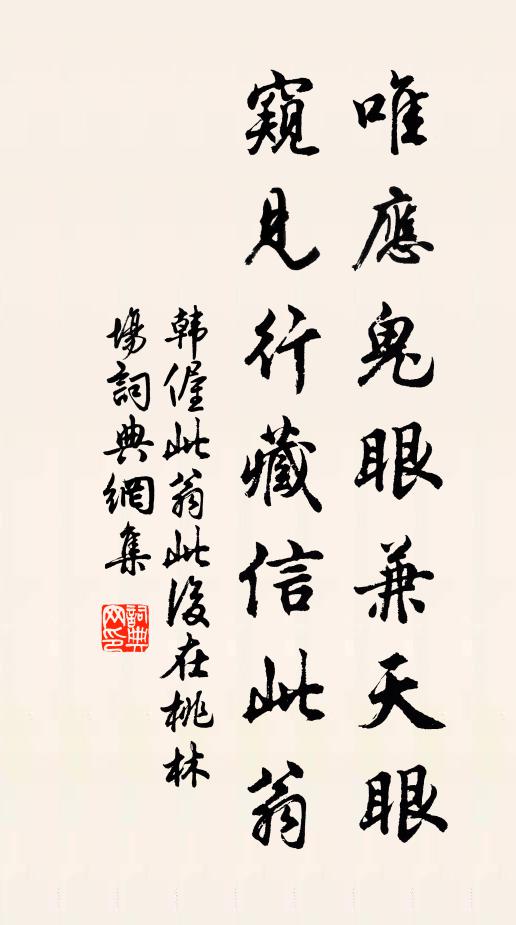 唯應鬼眼兼天眼
窺見行藏信此翁
韩偓此翁此後在桃林
場詞典網集
詞典網印